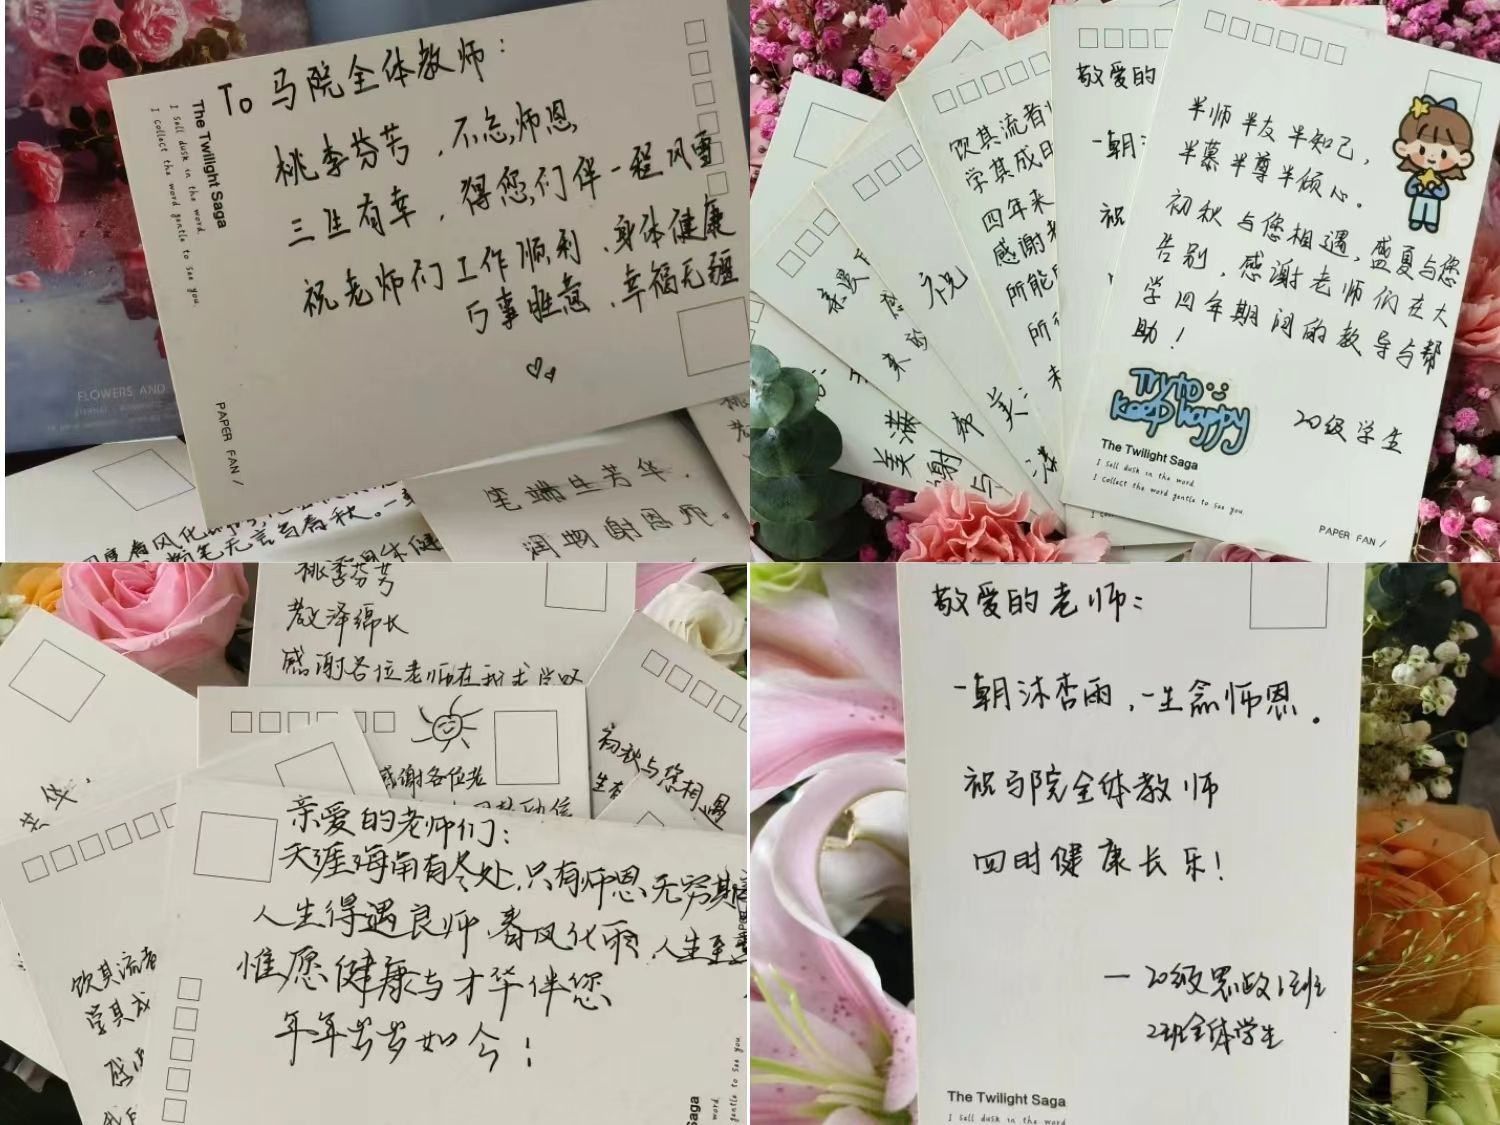 To 马院全体教师：
桃李芬芳，不忘师恩，
三生有幸，得您们伴一程风雪
祝老师们工作顺利、身体健康
万事胜意、幸福无疆
The Twilight Saga
I sell dusk in the word.
I collect the word gentle to see you.
PAPER FAN /
FLOWERS AND
笔端生芳华，
润物谢恩师。
春风化
粉笔无言写春秋。一
敬爱的
一朝
祝
饮其流者
学其成
四年来
感谢老
所能
所
亲爱
感
来的
祝
美满
谢与
半师半友半知己，
半慕半尊半倾心。
初秋与您相遇，盛夏与您
告别，感谢老师们在大
学四年期间的教导与帮
助！
20级学生
Try to
keep happy
The Twilight Saga
I sell dusk in the word.
I collect the word gentle to see you.
PAPER FAN /
桃李芬芳
教泽绵长
感谢各位老师在
感谢各位老
初秋与您相遇
芳华，
饮其流者
学其成
感
亲爱的老师们：
天涯海角有尽处，只有师恩无穷期
人生得遇良师，春风化雨，人生至
惟愿健康与才华伴您
年年岁岁如今！
敬爱的老师：
一朝沐杏雨，一生念师恩。
祝马院全体教师
四时健康长乐！
— 20级思政1班
2班全体学生
The Twilight Saga
I sell dusk in the word